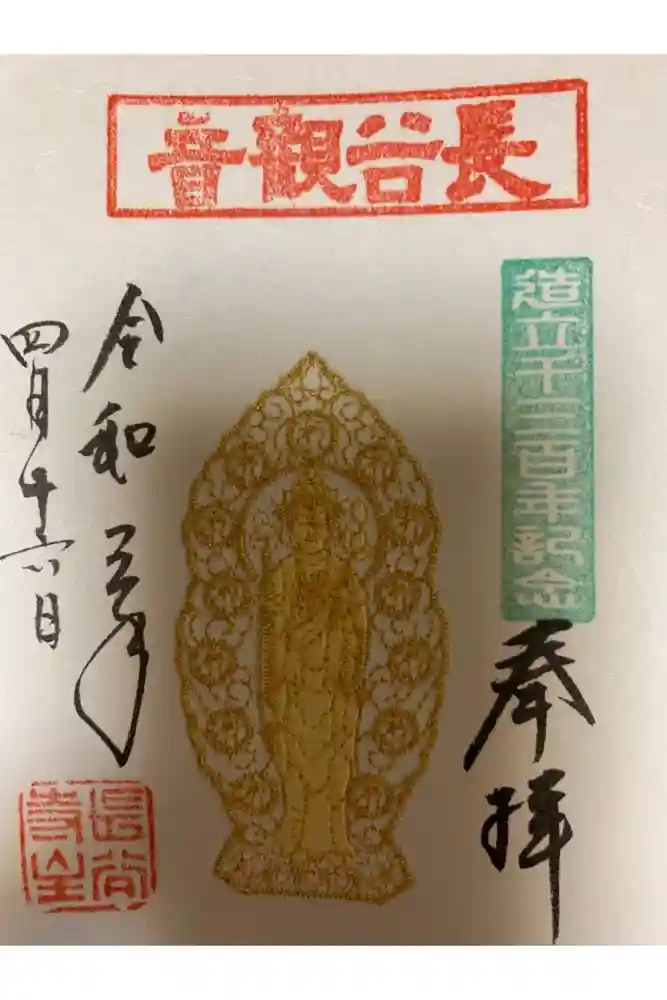 長谷觀音
造立千三百年記念
奉拝
令和三年
四月十六日
長谷
寺